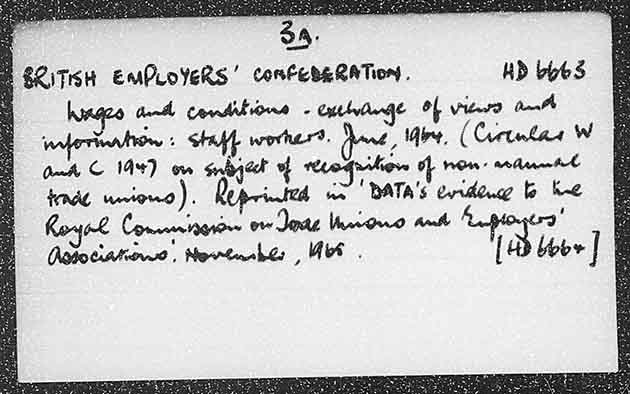 3A.
BRITISH EMPLOYERS' CONFEDERATION. HD 6663
Wages and conditions - exchange of views and
information: staff workers. June, 1964. (Circular W
and C 1947 on subject of recognition of non-manual
trade unions). Reprinted in 'DATA's evidence to the
Royal Commission on Trade Unions and Employers'
Associations'. November, 1965. [HD 6664]